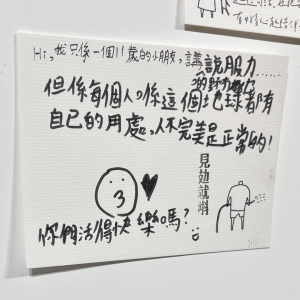 Hi, 我只係一個11歲的小朋友, 講說服力……
但係每個人, 係這個地球都有
自己的用處, 人不完美是正常的!
見攰就唞
你們活得快樂嗎?